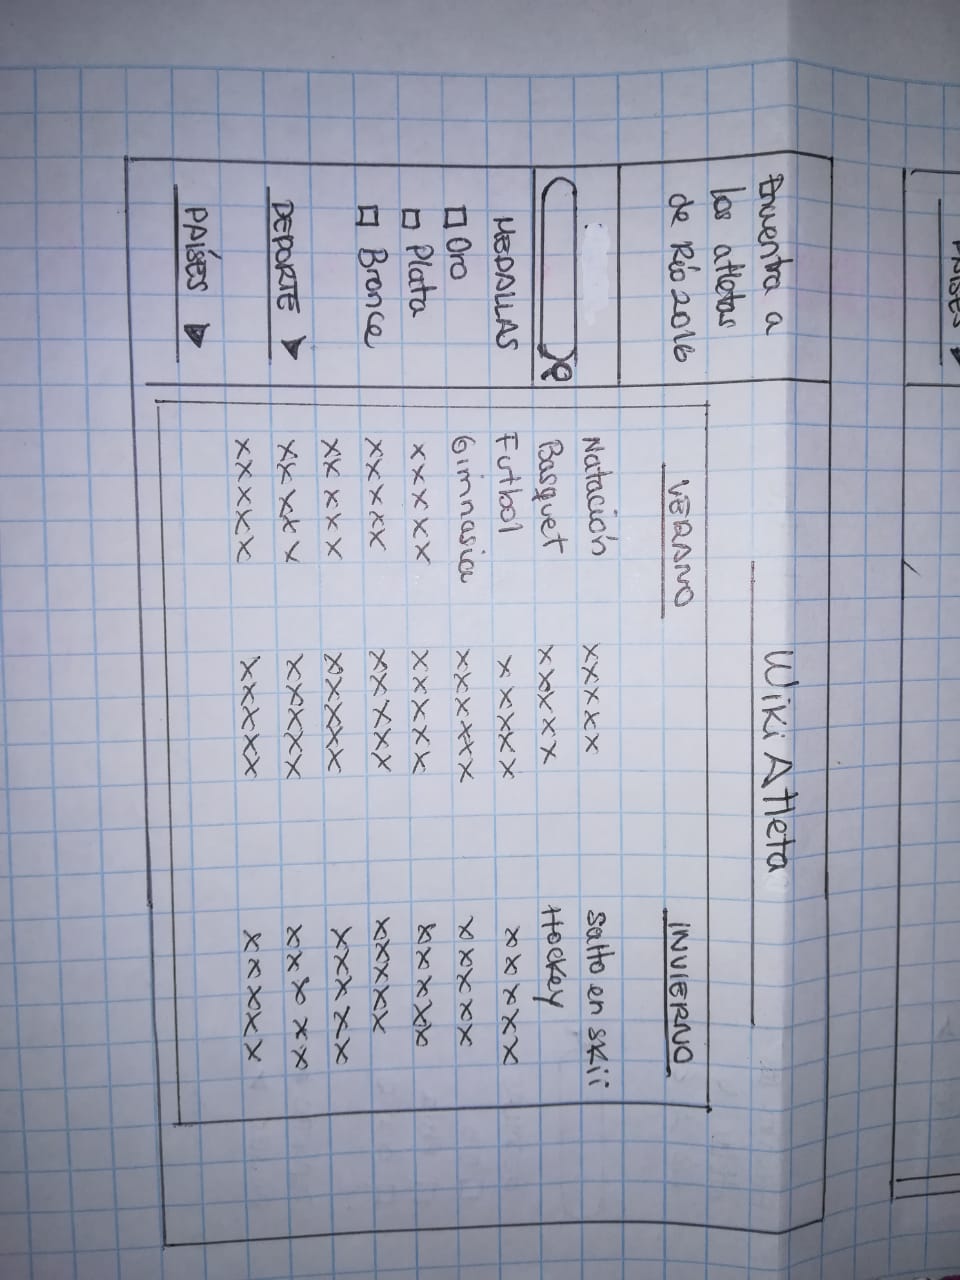 Encuentra a
los atletas
de Río 2016
MEDALLAS
Oro
Plata
Bronce
DEPORTE
PAÍSES
Wiki Atleta
VERANO
Natación
Basquet
Futbol
Gimnasia
xxxxx
xxxxx
xxxxx
xxxxx
xxxxx
xxxxx
xxxxx
xxxxx
xxxxxx
xxxxx
xxxxx
xxxxx
xxxxx
xxxxx
INVIERNO
Salto en skii
Hockey
xxxxx
xxxxx
xxxxx
xxxxx
xxxxx
xxxxx
xxxxx
PAÍSES